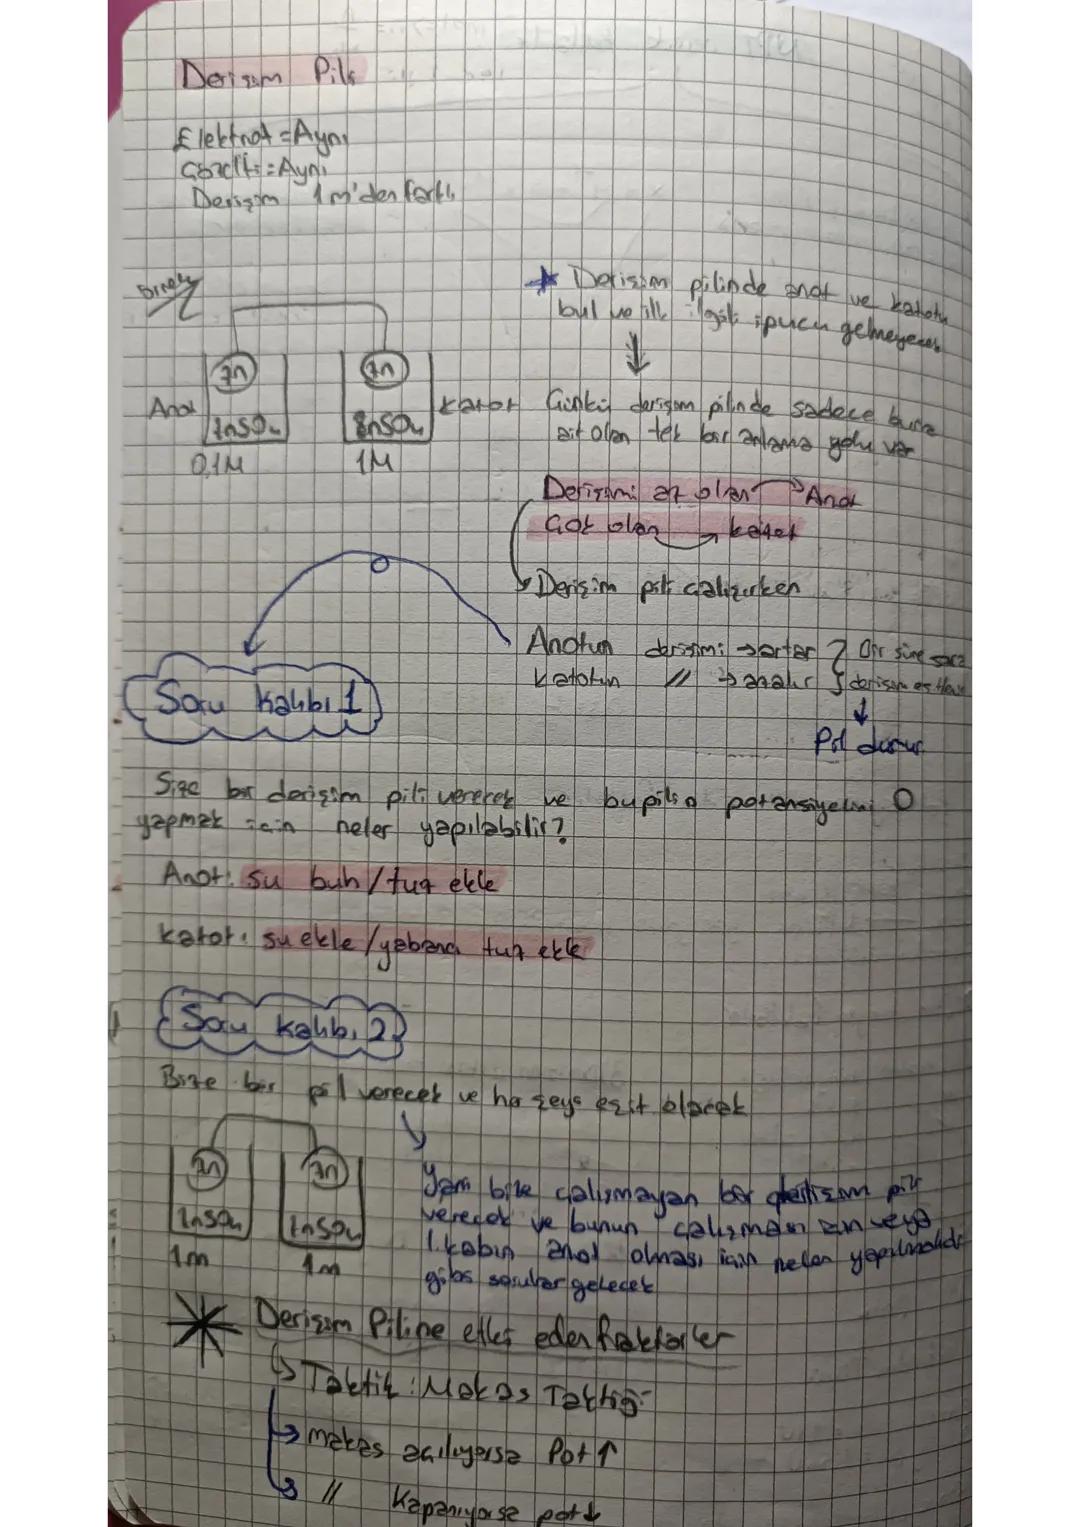 Derişim Pili
Elektrot = Aynı
Çözelti = Aynı
Derişim 1m'den farklı
Örnek
Zn
Zn
Anot
ZnSO4
ZnSO4
Katot
0,1M
1M
* Derişim pilinde anot ve katotu
bul ile ilgili ipucu gelmeyecek
Çünkü derişim pilinde sadece buna
ait olan tek bir anlama yolu var
Derişimi az olan → Anot
Çok olan → katot
Derişim pili çalışırken
Anotun derişimi → artar } Bir süre sonra
Katotun // → azalır } derişim eşitlenir
↓
Pil durur
Soru Kalıbı 1
Size bir derişim pili verecek ve bu pilin potansiyelini 0
yapmak için neler yapılabilir?
Anot: su buh / tuz ekle
Katot: su ekle / yabancı tuz ekle
Soru Kalıbı 2
Bize bir pil verecek ve her şeyi eşit olacak
Zn
Zn
ZnSO4
ZnSO4
1m
1m
Yani bize çalışmayan bir derişim pili
verecek ve bunun çalışması için veya
1. kabın anot olması için neler yapılmalıdır
gibi sorular gelecek
* Derişim Piline etki eden faktörler
↳ Taktik: Makas Taktiği
→ makas açılıyorsa Pot ↑
→ // Kapanıyorsa pot ↓